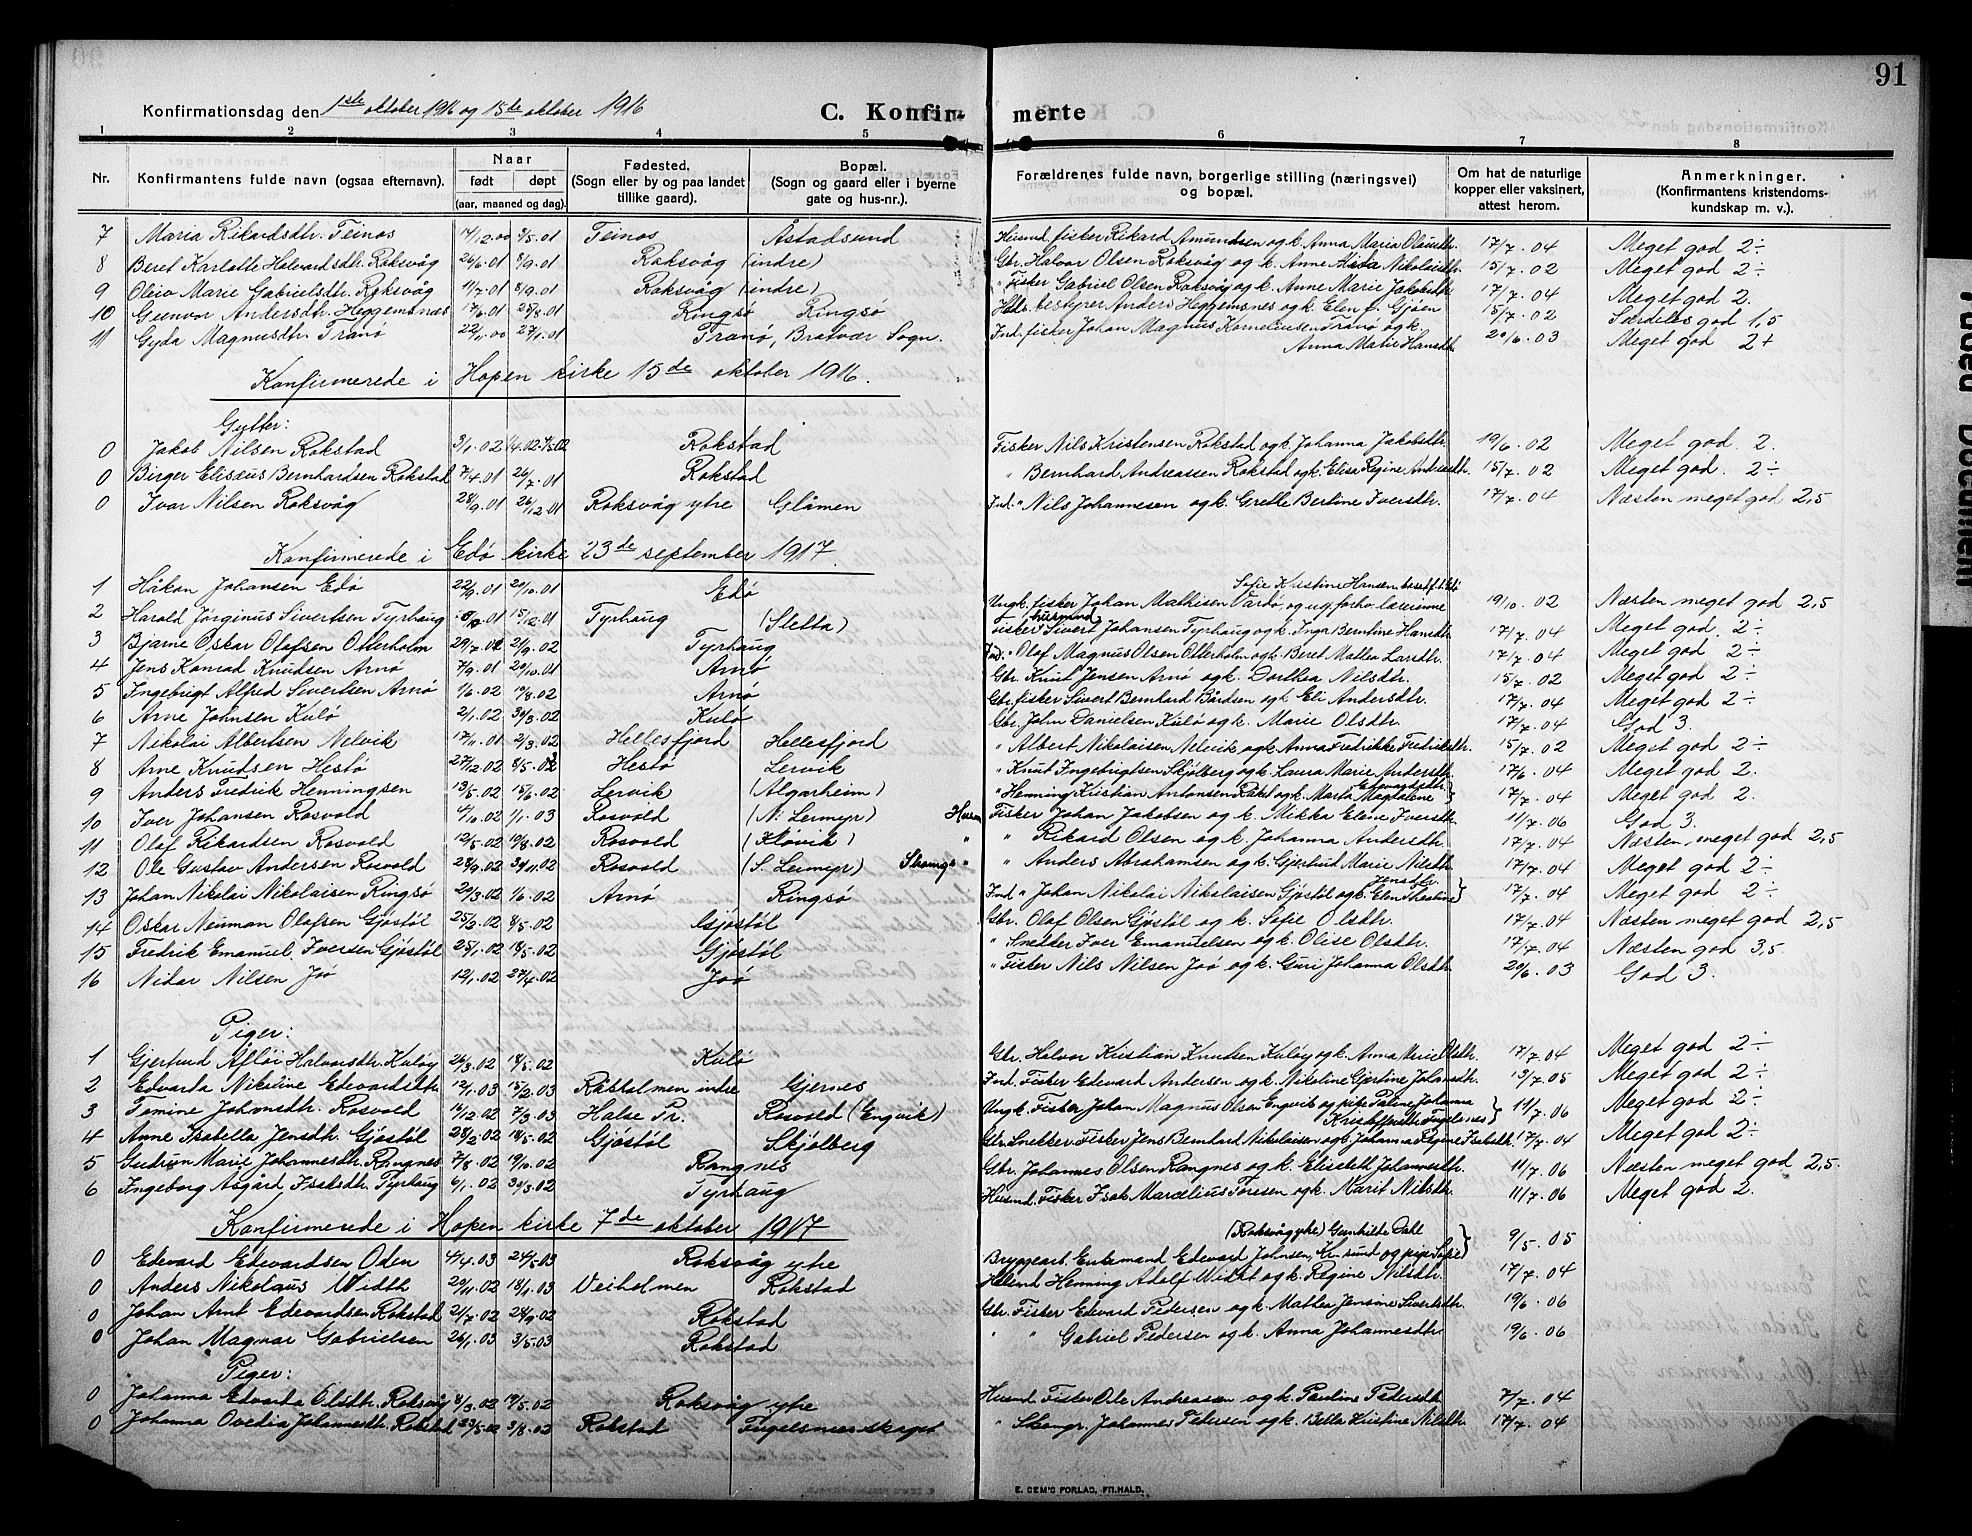 91
Konfirmationsdag den 1ste oktober 1916 og 15de oktober 1916
C. Konfirmerte
1 2 3 4 5 6 7 8
Nr. Konfirmantens fulde navn (ogsaa efternavn). Naar født døpt (aar, maaned og dag). Fødested. (Sogn eller by og paa landet tillike gaard). Bopæl. (Sogn og gaard eller i byerne gate og hus-nr.). Forældrenes fulde navn, borgerlige stilling (næringsvei) og bopæl. Om hat de naturlige kopper eller vaksinert, attest herom. Anmerkninger. (Konfirmantens kristendomskundskap m. v.).
7 Maria Rikardsdtr. Teinos 14/12.00 9/5.01 Teinos Åstadsund Husmd. fisker Rikard Amundsen og k. Anna Maria Olausdtr. 17/7.04 Meget god 2÷
8 Beret Karlotte Halvardsdtr. Roksvåg 26/6.01 8/9.01 Roksvåg (indre) Gbr. Halvor Olsen Roksvåg og k. Anne Nikolaisdtr. 15/7.02 Meget god 2÷
9 Oleiv Marie Gabrielsdtr. Roksvåg 11/7.01 8/9.01 Roksvåg (indre) " Fisker Gabriel Olsen Roksvåg og k. Anne Marie Jakobsdtr. 17/7.04 Meget god 2.
10 Gunvor Andersdtr. Heggemsnæs 17/6.01 25/8.01 Ringsø Ringsø bestyrer Anders Heggemsnes og k. Elen f. Gjøen 15/7.02 Særdeles god 1,5
11 Gyda Magnusdtr. Tranø 22/11.00 27/1.01 Tranø, Bratvær Sogn. Ind. fisker Johan Magnus Korneliusen Tranø og k. Anna Marie Hansdtr. 20/6.03 Meget god 2+
Konfirmerede i Hopen kirke 15de oktober 1916.
Gutter:
0 Jakob Nilsen Rokstad 3/1.02 Rokstad Fisker Nils Kristensen Rokstad og k. Johanna Jakobsdtr. 19/6.02 Meget god. 2.
0 Birger Elisæus Bernhardsen Rokstad 7/4.01 26/7.01 Rokstad " Bernhard Andreassen Rokstad og k. Elisa Regine Andreasdtr. 15/7.02 Meget god. 2÷
0 Ivar Nilsen Roksvåg 28/9.01 26/12.01 Roksvåg ytre Glåmen Ind. " Nils Johannesen og k. Grethe Bertine Iversdtr. 17/7.04 Næsten meget god 2,5
Konfirmerede i Edø kirke 23de september 1917.
1 Håkon Johansen Edø 22/9.01 20/10.01 Edø Ungk. fisker Johan Mathisen Vardø, og ug. forhv. lærerinne Sofie Kristine Hansen 19/10.02 Næsten meget god 2,5
2 Harald Jørginus Sivertsen Tyrhaug 15/12.01 Tyrhaug (Sletta) Fisker husmand Sivert Johansen Tyrhaug og k. Inga Berntine Hansdtr. 17/7.04 Meget god. 2÷
3 Bjarne Oskar Olafsen Otterholm 29/7.02 21/9.02 Tyrhaug Ind. " Olaf Magnus Olsen Otterholm og k. Beret Mathea Larsdtr. 17/7.04 Meget god 2÷
4 Jens Konrad Knudsen Arnø 7/9.01 20/10.01 Arnø Gbr. Knut Jensen Arnø og k. Dorthea Nilsdtr. 15/7.02 Meget god 2÷
5 Ingebrigt Alfred Sivertsen Arnø 1/6.02 10/8.02 Arnø Gbr. fisker Sivert Bernhard Bårdsen og k. Eli Andersdtr. 17/7.04 Meget god 2÷
6 Arne Johnsen Kulø 2/1.02 30/3.02 Kulø Gbr. John Danielsen Kulø og k. Marie Olsdtr. 17/7.04 God 3.
7 Nikolai Albertsen Nelvik 17/11.01 2/3.02 Hellesfjord Hellesfjord " Albert Nikolaisen Nelvik og k. Anna Fredrikke Fredriksdtr. 15/7.02 Meget god 2÷
8 Arne Knudsen Hestø 27/12.02 8/5.02 Hestø Lervik " Knut Ingebrigtsen Skjølberg og k. Laura Marie Andersdtr. 17/6.04 Meget god 2.
9 Anders Fredrik Henningsen 13/5.02 15/6.02 Lervik (Algarheim) " Henning Kristian Antonsen og k. Marta Magdalene Edvardsdtr. 17/7.04 Meget god 2.
10 Iver Johansen Rosvold 4/10.02 1/1.03 Rosvold (N. Leimyr) Husm Fisker Johan Jakobsen og k. Mikka Eline Iversdtr. 11/7.06 God 3.
11 Olaf Rikardsen Rosvold 12/5.02 10/8.02 Rosvold (Kløvik) " " Rikard Olsen og k. Johanna Andersdtr. 17/7.04 Næsten meget god 2,5
12 Ole Gustav Andersen Rosvold 28/9.02 30/11.02 Rosvold (S. Leimyr) " " Anders Abrahamsen og k. Gjertrud Marie Nilsdtr. 17/7.04 Meget god 2÷
13 Johan Nikolai Nikolaisen Ringsø 20/3.02 1/6.02 Arnø Ringsø Ind " Johan Nikolai Nikolaisen Gjøstøl og k. Elen Theatine Jensdtr. 17/7.04 Meget god 2÷
14 Oskar Neuman Olafsen Gjøstøl 25/2.02 8/5.02 Gjøstøl Gbr. Olaf Olsen Gjøstøl og k. Sofie Olsdtr. 17/7.04 Næsten meget god 2,5
15 Fredrik Emanuel Iversen Gjøstøl 25/1.02 18/5.02 Gjøstøl " Snekker Iver Emanuelsen og k. Olise Olsdtr. 17/7.04 Næsten god 3,5
16 Nidar Nilsen Joø 12/1.02 27/4.02 Joø " Fisker Nils Nilsen Joø og k. Guri Johanna Olsdtr. 20/6.03 God 3.
Piger:
1 Gjertrud Afløi Halvorsdtr. Kuløy 26/3.02 18/5.02 Kulø Gbr. Halvor Kristian Knudsen Kuløy og k. Anna Marie Olsdtr. 17/7.04 Meget god 2÷
2 Edvarda Nikoline Edvardsdtr 12/1.03 15/2.03 Råstolmen indre Gjernes Ind. Fisker Edvard Andersen og k. Nikoline Gjertine Johansdtr. 13/7.05 Meget god 2÷
3 Tomine Johansdtr. Rosvold 16/12.02 7/3.03 Halse Pr. Rosvold (Engvik) Ungk. Fisker Johan Magnus Olsen Engvik og pike Paline Johanna Kristoffersdtr. Fugelsnes 11/7.06 Meget god 2÷
4 Anne Isabella Jensdtr. Gjøstøl 28/2.02 18/5.02 Gjøstøl Skjølberg Gbr. Snekker Fisker Jens Bernhard Nikolaisen og k. Johanna Regine Isaksdtr. 17/7.04 Meget god 2÷
5 Gudrun Marie Johannesdtr. Rangnes 7/8.02 19/10.02 Rangnes Gbr. Johannes Olsen Rangnes og k. Elisabeth Johannesdtr. 11/7.06 Næsten meget god 2,5.
6 Ingeborg Asgård Isaksdtr. Tyrhaug 6/1.02 30/3.02 Tyrhaug Husmd. Fisker Isak Marselius Toresen og k. Marit Nilsdtr. 11/7.06 Meget god 2.
Konfirmerede i Hopen kirke 7de oktober 1917
0 Edvard Edvardsen Oden 4/4.03 24/5.03 Roksvåg ytre Bryggearb. Enkemand Edvard Johnsen, Kr.sund og pige Sofie (Roksvåg ytre) Gunhilde Dahl 9/5.05
0 Anders Nikolaus Width 20/11.02 18/1.03 Veiholmen Rokstad Henning Adolf Width og k. Regine Nilsdtr. 17/7.04
0 Johan Arnt Edvardsen Rokstad 21/7.02 28/9.02 Rokstad Gbr. Fisker Edvard Pedersen og k. Mathea Jensine Sivertsdtr. 19/6.06
0 Johan Magnar Gabrielsen 26/1.03 3/5.03 Rokstad " " Gabriel Pedersen og k. Anna Johannesdtr. 19/6.06
Piger:
0 Johanna Edvarda Olsdtr. Roksvåg 8/3.02 19/5.02 Roksvåg ytre Husmd. Fisker Ole Andreassen og k. Pauline Pedersdtr. 7/7.04
0 Johanna Ovedia Johannesdtr. Rokstad 23/5.02 3/8.02 Rokstad Fugelsnesskaget " Johannes Pedersen og k. Bella Kristine Nilsdtr. 17/7.04
E. SEM'S FORLAG, FR.HALD.